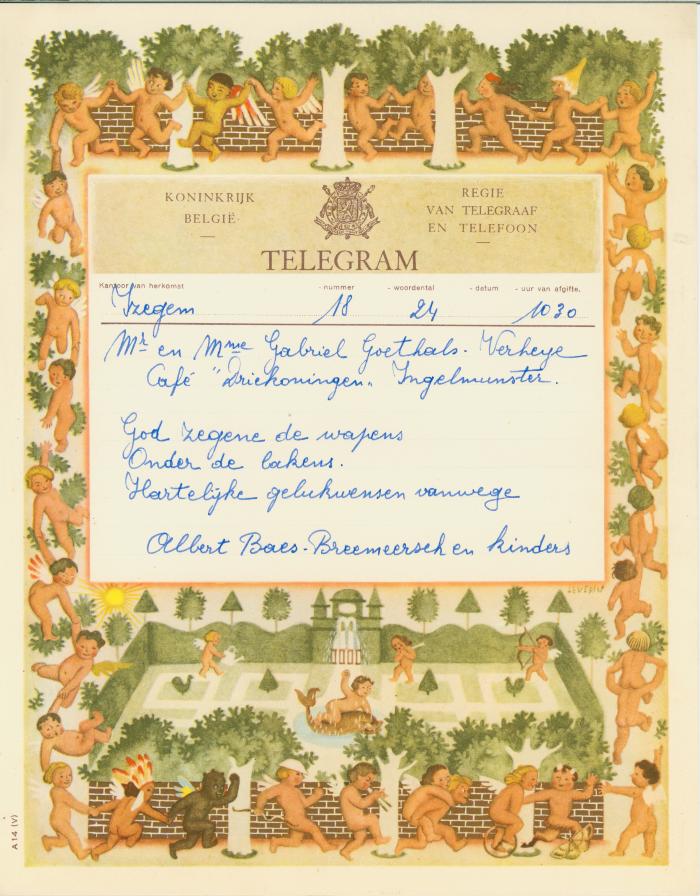 KONINKRIJK
BELGIË
REGIE
VAN TELEGRAAF
EN TELEFOON
TELEGRAM
Kantoor van herkomst - nummer - woordental - datum - uur van afgifte.
Izegem 18 24 10 30
Mr en Mme Gabriel Goethals. Verheye
Café "Driekoningen" Ingelmunster.
God zegene de wapens
Onder de lakens.
Hartelijke gelukwensen vanwege
Albert Baes-Breemeersch en kinders
A 14 (V)